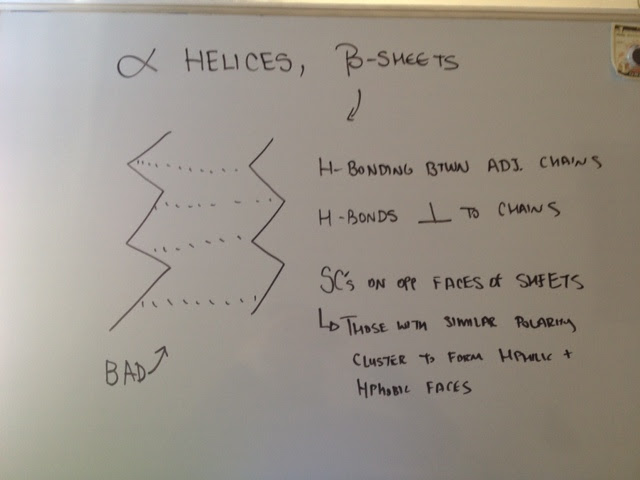 α HELICES, β-SHEETS
H-BONDING BTWN ADJ. CHAINS
H-BONDS ⊥ TO CHAINS
SC's ON OPP FACES of SHEETS
↳ THOSE WITH SIMILAR POLARITY
CLUSTER to FORM HPHILIC +
HPHOBIC FACES
BAD